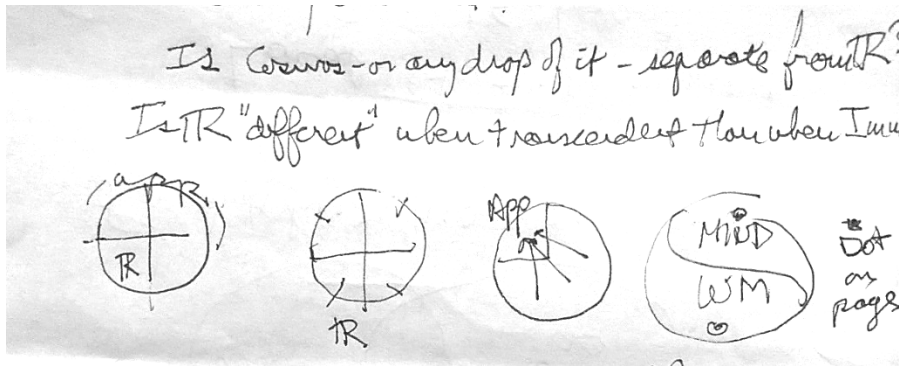 Is Cosmos - or any drop of it - separate from TR?
Is TR "different" when transcendent than when Imm
app
R
TR
App
MIND
WM
Dot
on
page